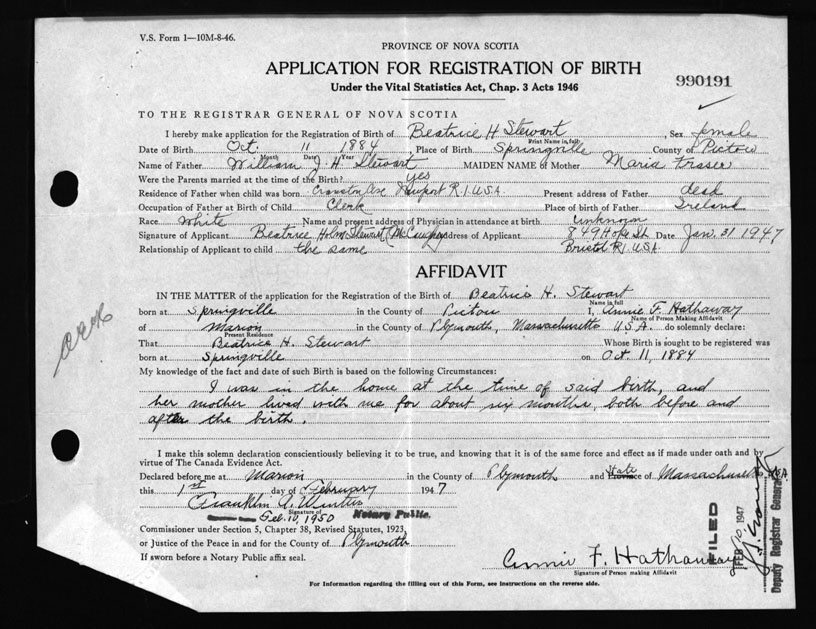 V.S. Form 1—10M-8-46.
PROVINCE OF NOVA SCOTIA
APPLICATION FOR REGISTRATION OF BIRTH
990191
Under the Vital Statistics Act, Chap. 3 Acts 1946
TO THE REGISTRAR GENERAL OF NOVA SCOTIA
I hereby make application for the Registration of Birth of Beatrice H Stewart, Sex female
Print Name in full
Date of Birth Oct. 11 1884, Place of Birth Springville County of Pictou
Month Day Year
Name of Father William J. H. Stewart MAIDEN NAME of Mother Maria Fraser
Were the Parents married at the time of the Birth? yes
Residence of Father when child was born Cranston Ave Newport R.I. U.S.A. Present address of Father dead
Occupation of Father at Birth of Child Clerk Place of birth of Father Ireland
Race White Name and present address of Physician in attendance at birth unknown
Signature of Applicant Beatrice Holm Stewart Address of Applicant 849 Hope St. Date Jan. 31 1947
Relationship of Applicant to child the same Bristol R.I. U.S.A.
AFFIDAVIT
IN THE MATTER of the application for the Registration of the Birth of Beatrice H. Stewart
Name in full
born at Springville in the County of Pictou I, Annie F. Hathaway
Name of Person Making Affidavit
of Marion in the County of Plymouth, Massachusetts U.S.A. do solemnly declare:
Present Residence
That Beatrice H. Stewart Whose Birth is sought to be registered was
born at Springville on Oct 11, 1884
My knowledge of the fact and date of such Birth is based on the following Circumstances:
I was in the home at the time of said birth, and
her mother lived with me for about six months, both before and
after the birth.
I make this solemn declaration conscientiously believing it to be true, and knowing that it is of the same force and effect as if made under oath and by
virtue of The Canada Evidence Act.
Declared before me at Marion in the County of Plymouth and State Province of Massachusetts U.S.A.
this 1st day of February 1947
Franklin A. Winter
Signature of
Feb. 10, 1950 Notary Public.
Commissioner under Section 5, Chapter 38, Revised Statutes, 1923,
or Justice of the Peace in and for the County of Plymouth
If sworn before a Notary Public affix seal.
Annie F. Hathaway
Signature of Person making Affidavit
For Information regarding the filling out of this Form, see instructions on the reverse side.
FILED
FEB 10 1947
Deputy Registrar General